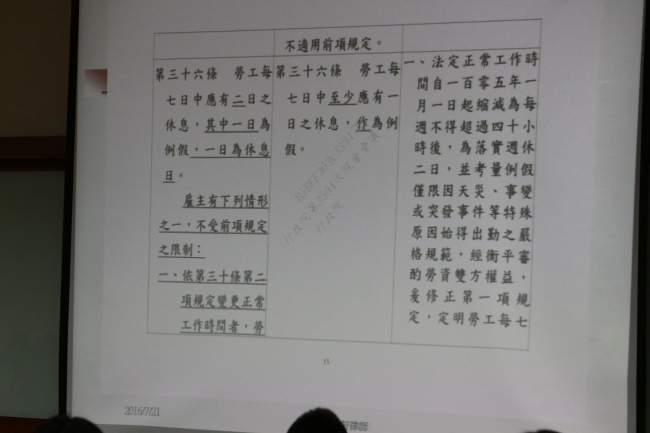 不適用前項規定。
第三十六條　勞工每
七日中應有二日之
休息，其中一日為
例假，一日為休息
日。
雇主有下列情形
之一，不受前項規定
之限制：
一、依第三十條第二
項規定變更正常
工作時間者，勞
第三十六條　勞工每
七日中至少應有一
日之休息，作為例
假。
一、法定正常工作時
間自一百零五年一
月一日起縮減為每
週不得超過四十小
時後，為落實週休
二日，並考量例假
僅限因天災、事變
或突發事件等特殊
原因始得出勤之嚴
格規範，經衡平審
酌勞資雙方權益，
爰修正第一項規
定，定明勞工每七
15
2016/7/21